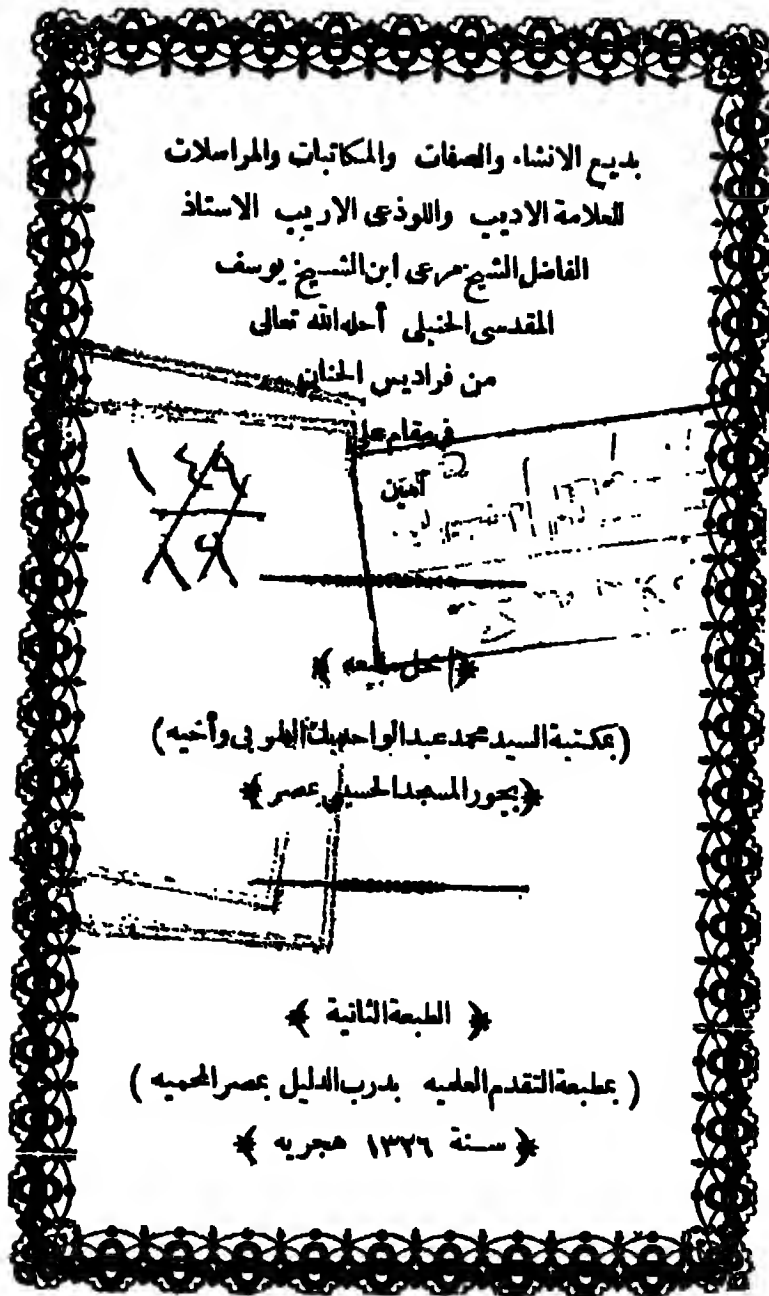 بديع الانشاء والصفات والمكاتبات والمراسلات
للعلامة الاديب واللوذعى الاريب الاستاذ
الفاضل الشيخ مرعى ابن الشيخ يوسف
المقدسى الحنبلى أحله الله تعالى
من فراديس الجنان
فى مقام على
آمين
﴿ محل بيعه ﴾
(بمكتبة السيد محمد عبد الواحد بك الطوبى وأخيه)
﴿ بجوار المسجد الحسينى بمصر ﴾
﴿ الطبعة الثانية ﴾
( بمطبعة التقدم العلميه بدرب الدليل بمصر المحميه )
﴿ سنة ١٣٢٦ هجريه ﴾